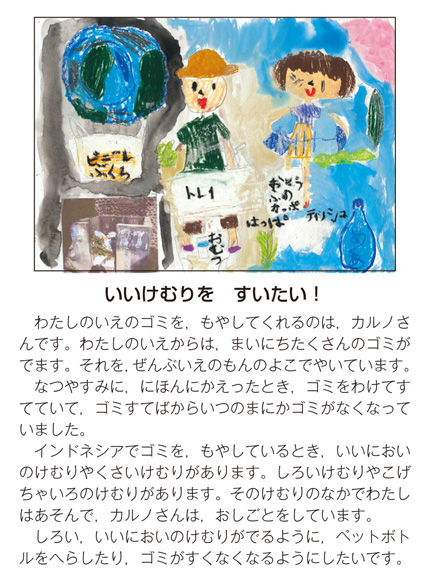 ビニール
ふくろ
トレイ
おむつ
はっぱ
ティッシュ
いいけむりを　すいたい！
　わたしのいえのゴミを，もやしてくれるのは，カルノさ
んです。わたしのいえからは，まいにちたくさんのゴミが
でます。それを，ぜんぶいえのもんのよこでやいています。
　なつやすみに，にほんにかえったとき，ゴミをわけてす
てていて，ゴミすてばからいつのまにかゴミがなくなって
いました。
　インドネシアでゴミを，もやしているとき，いいにおい
のけむりやくさいけむりがあります。しろいけむりやこげ
ちゃいろのけむりがあります。そのけむりのなかでわたし
はあそんで，カルノさんは，おしごとをしています。
　しろい，いいにおいのけむりがでるように，ペットボト
ルをへらしたり，ゴミがすくなくなるようにしたいです。